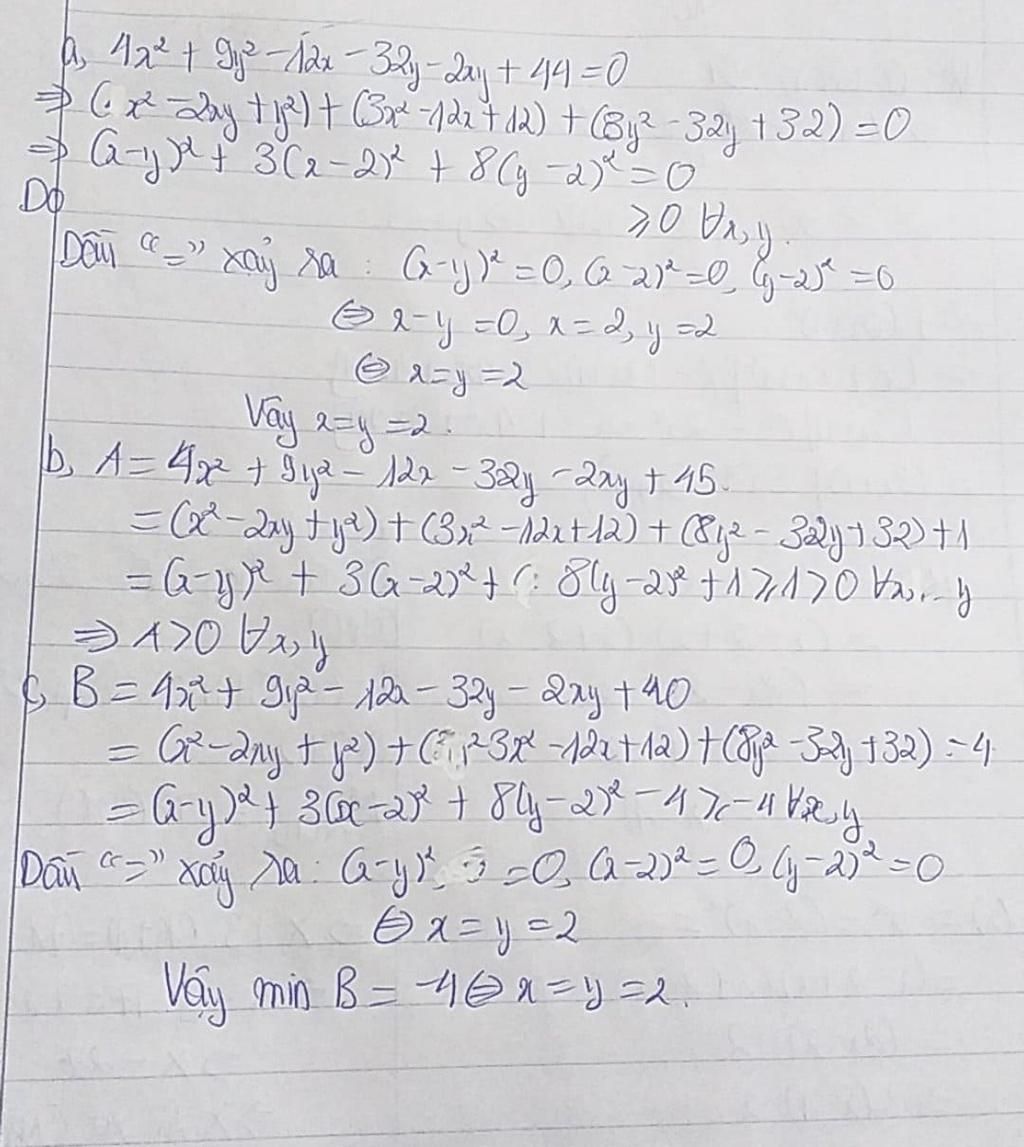 a, 4x² + 9y² - 12x - 32y - 2xy + 44 = 0
⇒ (x² - 2xy + y²) + (3x² - 12x + 12) + (8y² - 32y + 32) = 0
⇒ (x-y)² + 3(x-2)² + 8(y-2)² = 0
Do
≥0 ∀x,y.
Dấu "=" xảy ra : (x-y)² = 0, (x-2)² = 0, (y-2)² = 0
⇔ x-y = 0, x = 2, y = 2
⇔ x = y = 2
Vậy x = y = 2.
b, A = 4x² + 9y² - 12x - 32y - 2xy + 45.
= (x² - 2xy + y²) + (3x² - 12x + 12) + (8y² - 32y + 32) + 1
= (x-y)² + 3(x-2)² + 8(y-2)² + 1 ≥ 1 > 0 ∀x, y
⇒ A > 0 ∀x,y
c, B = 4x² + 9y² - 12x - 32y - 2xy + 40
= (x² - 2xy + y²) + (3x² - 12x + 12) + (8y² - 32y + 32) - 4
= (x-y)² + 3(x-2)² + 8(y-2)² - 4 ≥ -4 ∀x,y
Dấu "=" xảy ra : (x-y)² = 0, (x-2)² = 0, (y-2)² = 0
⇔ x = y = 2
Vậy min B = -4 ⇔ x = y = 2.